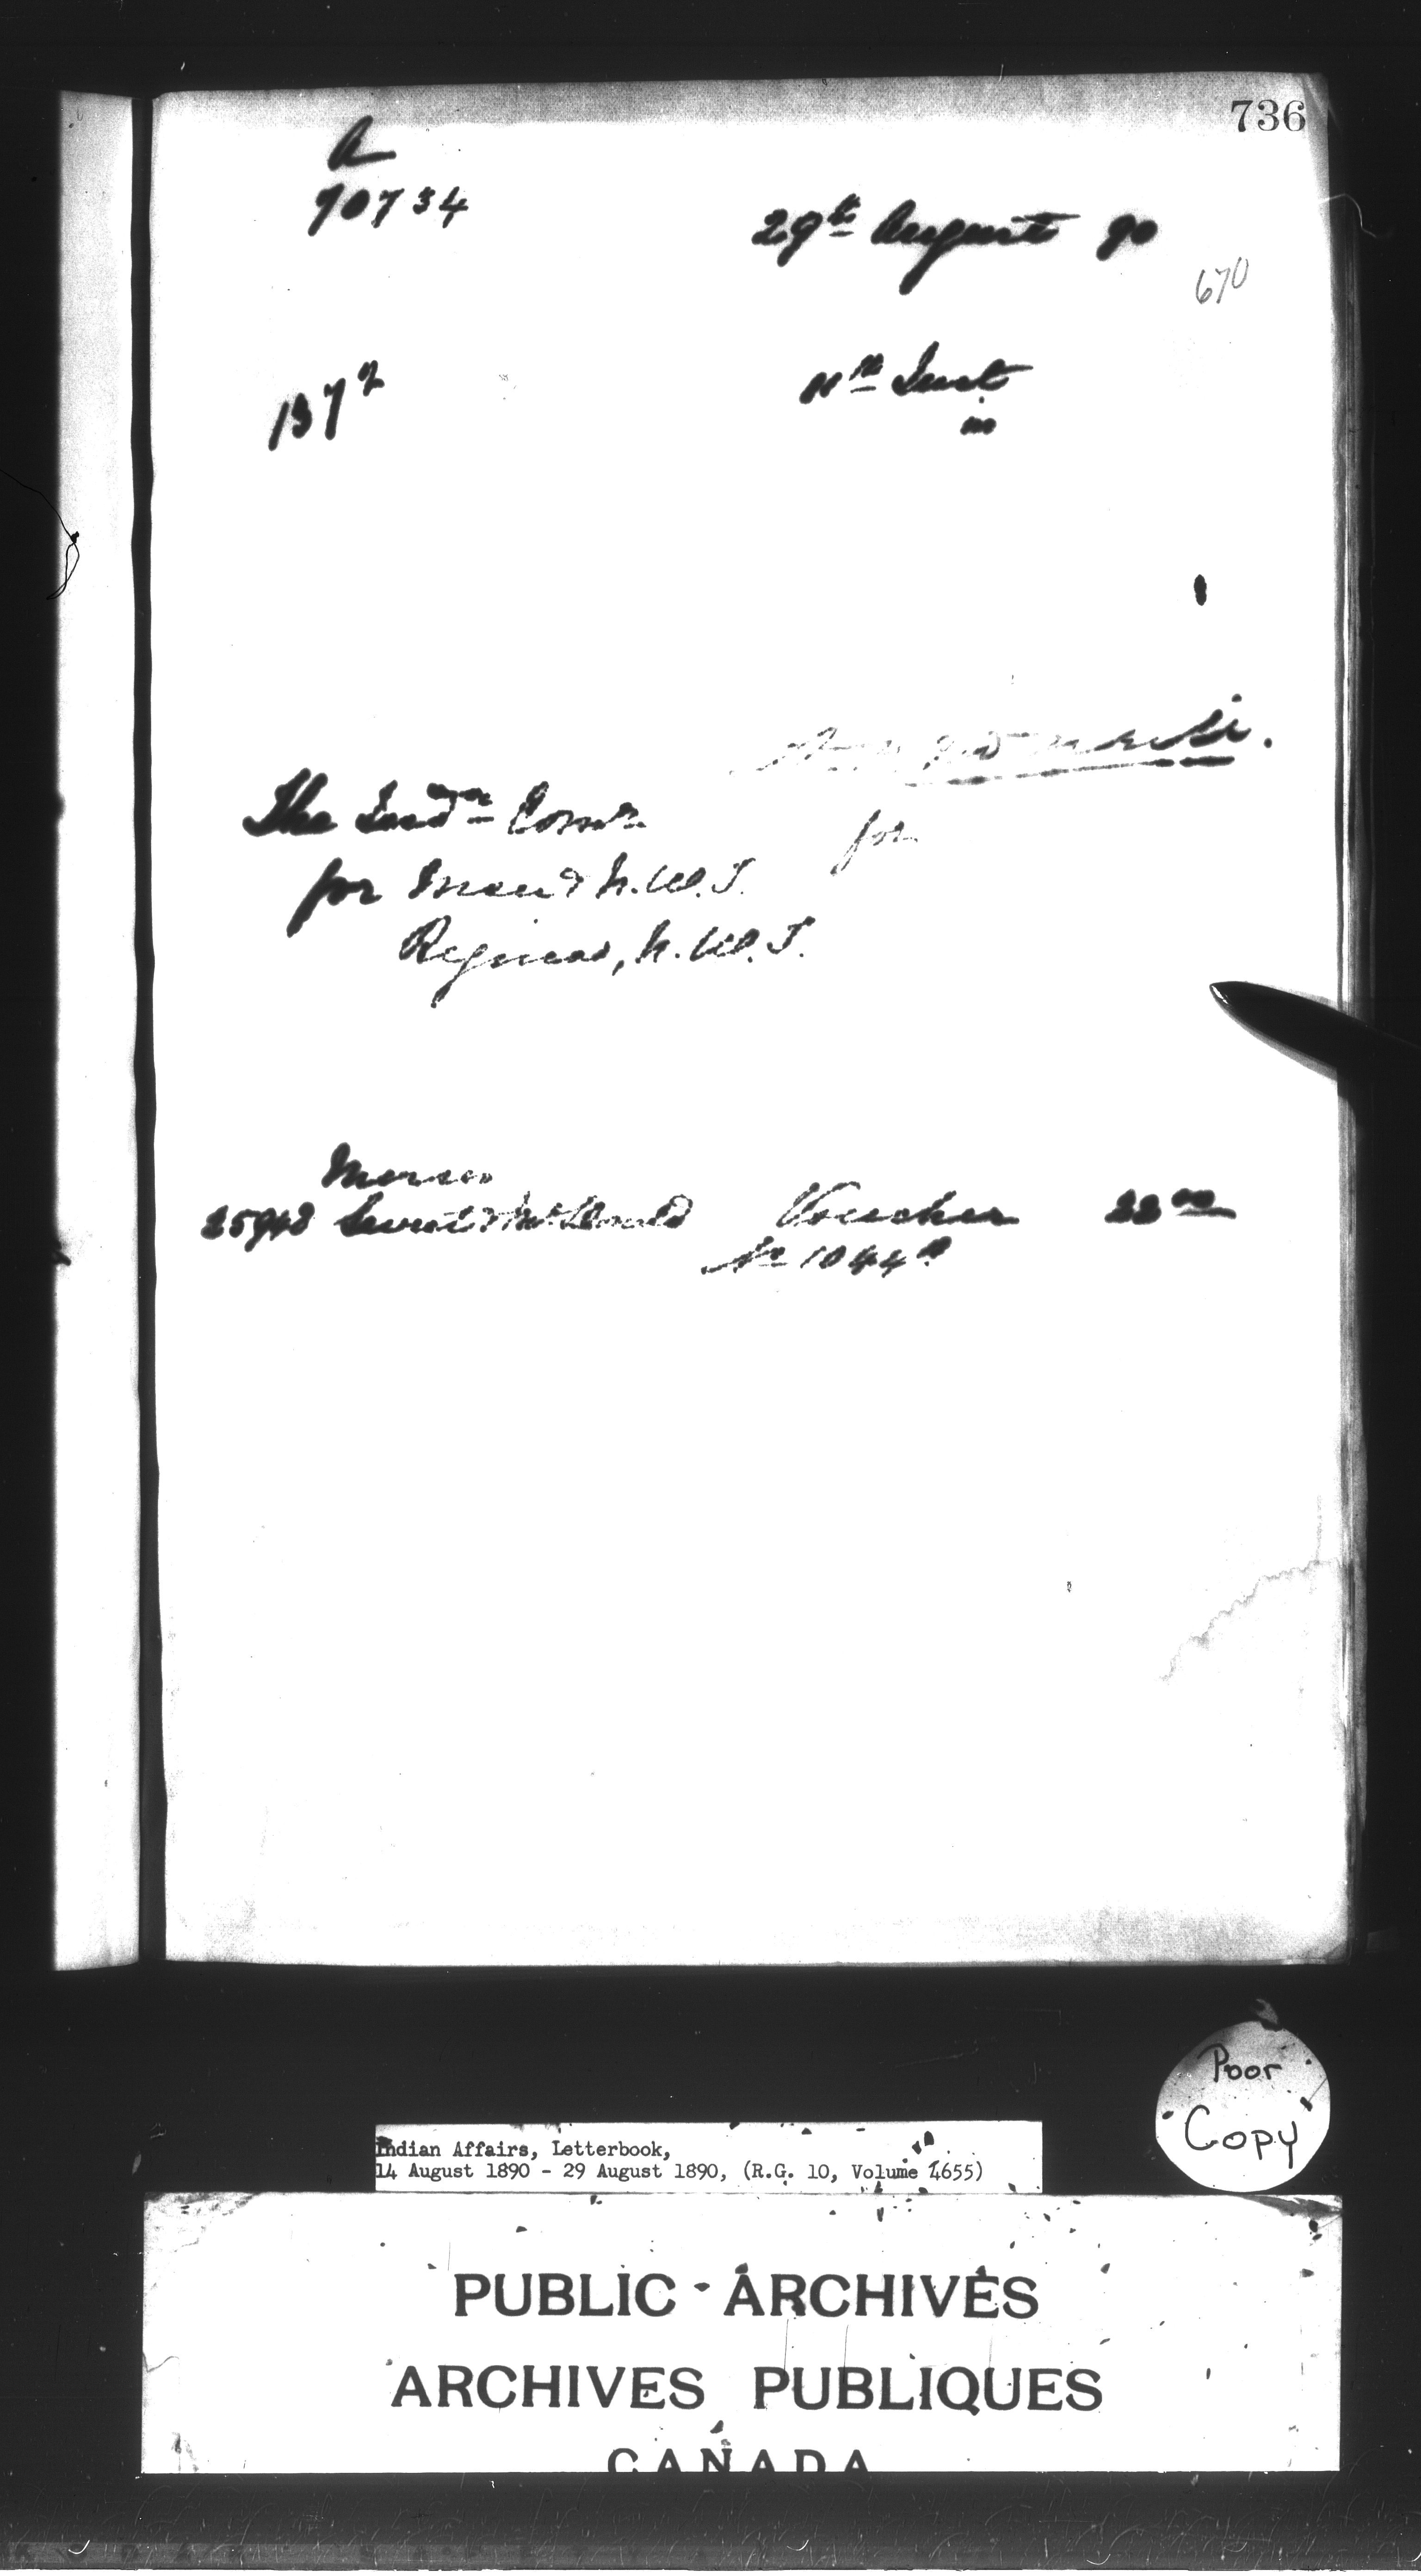 736
A
70734
29th August 90
670
137 2
11th Inst
in
The Ind'n Com'r
for Man & N.W.T.
for
Regina, N.W.T.
Messrs
25948 & McDonald Voucher 22 00
No 1044
Poor
Copy
Indian Affairs, Letterbook,
14 August 1890 - 29 August 1890, (R.G. 10, Volume 4655)
PUBLIC ARCHIVES
ARCHIVES PUBLIQUES
CANADA